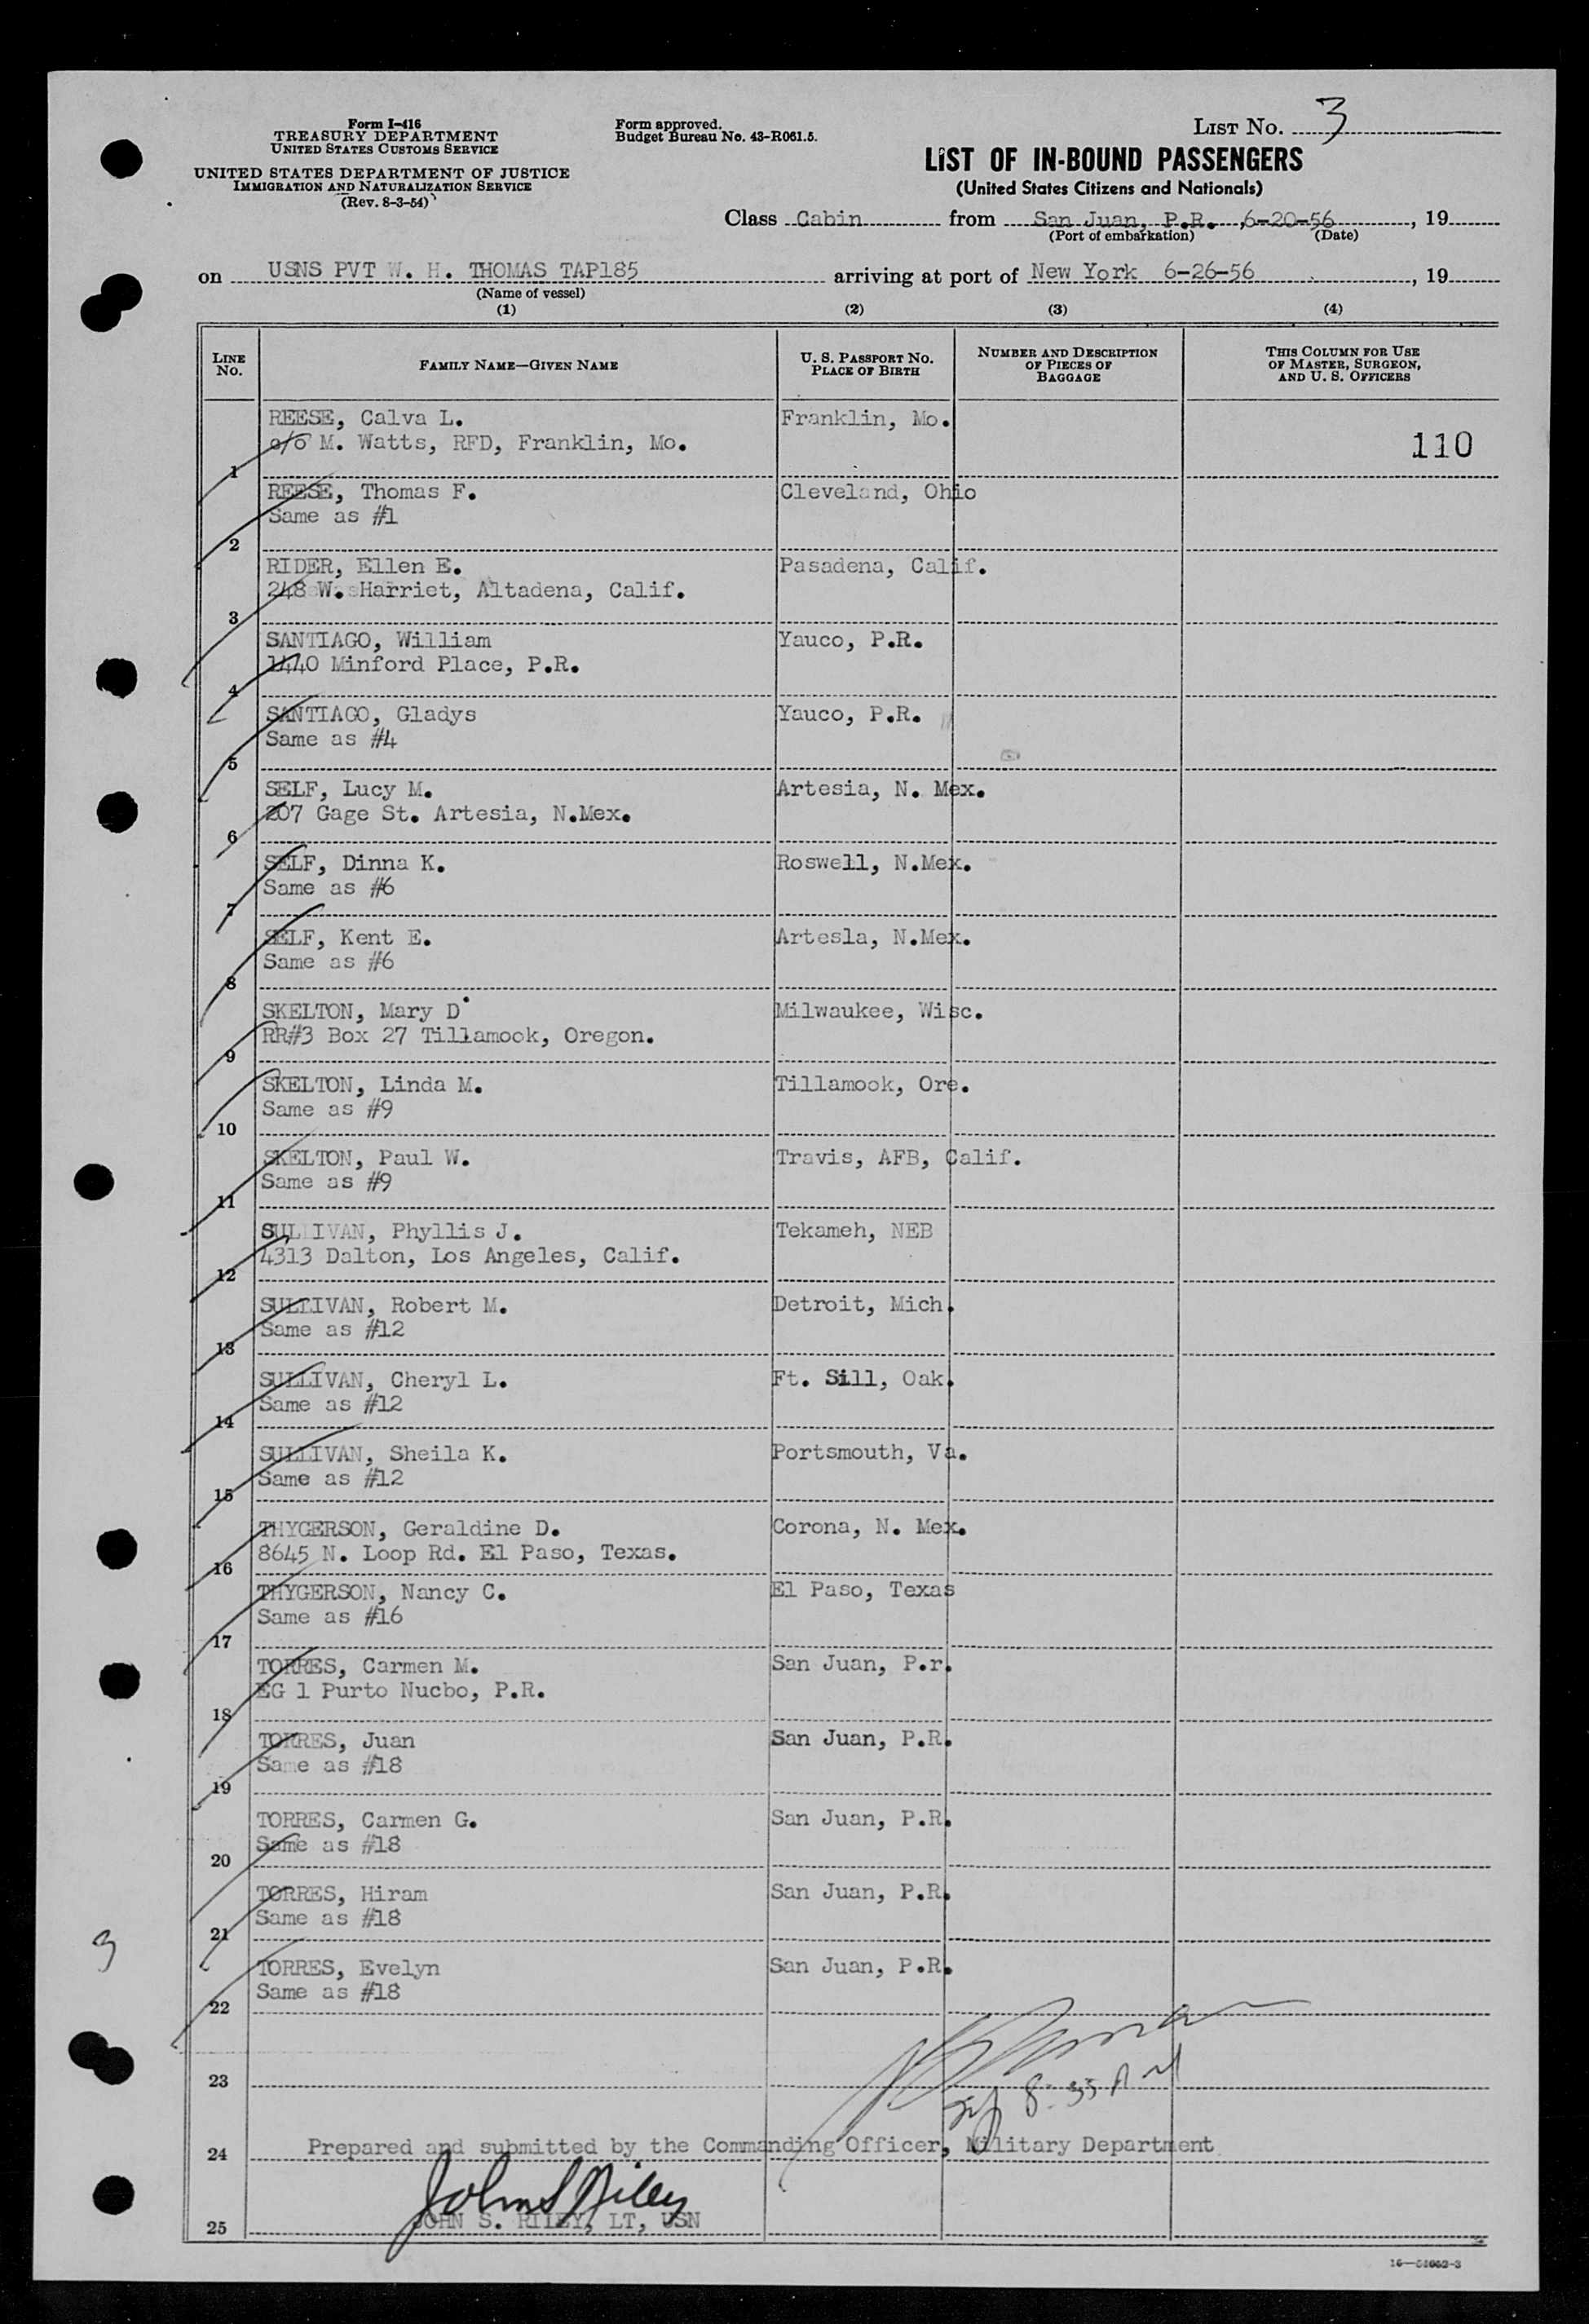 Form I-416
TREASURY DEPARTMENT
UNITED STATES CUSTOMS SERVICE
UNITED STATES DEPARTMENT OF JUSTICE
IMMIGRATION AND NATURALIZATION SERVICE
(Rev. 8-3-54)
Form approved.
Budget Bureau No. 43-R061.5.
LIST No. 3
LIST OF IN-BOUND PASSENGERS
(United States Citizens and Nationals)
Class Cabin from San Juan, P.R. ,6-20-56 , 19
(Port of embarkation) (Date)
on USNS PVT W. H. THOMAS TAP185 arriving at port of New York 6-26-56 , 19
(Name of vessel)
(1) (2) (3) (4)
LINE No. FAMILY NAME—GIVEN NAME U. S. PASSPORT NO. PLACE OF BIRTH NUMBER AND DESCRIPTION OF PIECES OF BAGGAGE THIS COLUMN FOR USE OF MASTER, SURGEON, AND U. S. OFFICERS
REESE, Calva L. Franklin, Mo.
c/o M. Watts, RFD, Franklin, Mo. 110
1
REESE, Thomas F. Cleveland, Ohio
Same as #1
2
RIDER, Ellen E. Pasadena, Calif.
248 W. Harriet, Altadena, Calif.
3
SANTIAGO, William Yauco, P.R.
1440 Minford Place, P.R.
4
SANTIAGO, Gladys Yauco, P.R.
Same as #4
5
SELF, Lucy M. Artesia, N. Mex.
207 Gage St. Artesia, N.Mex.
6
SELF, Dinna K. Roswell, N.Mex.
Same as #6
7
SELF, Kent E. Artesla, N.Mex.
Same as #6
8
SKELTON, Mary D. Milwaukee, Wisc.
RR#3 Box 27 Tillamook, Oregon.
9
SKELTON, Linda M. Tillamook, Ore.
Same as #9
10
SKELTON, Paul W. Travis, AFB, Calif.
Same as #9
11
SULLIVAN, Phyllis J. Tekameh, NEB
4313 Dalton, Los Angeles, Calif.
12
SULLIVAN, Robert M. Detroit, Mich.
Same as #12
13
SULLIVAN, Cheryl L. Ft. Sill, Oak.
Same as #12
14
SULLIVAN, Sheila K. Portsmouth, Va.
Same as #12
15
THYGERSON, Geraldine D. Corona, N. Mex.
8645 N. Loop Rd. El Paso, Texas.
16
THYGERSON, Nancy C. El Paso, Texas
Same as #16
17
TORRES, Carmen M. San Juan, P.r.
EG 1 Purto Nucbo, P.R.
18
TORRES, Juan San Juan, P.R.
Same as #18
19
TORRES, Carmen G. San Juan, P.R.
Same as #18
20
TORRES, Hiram San Juan, P.R.
Same as #18
21
3
TORRES, Evelyn San Juan, P.R.
Same as #18
22
23
8:35 AM
24 Prepared and submitted by the Commanding Officer, Military Department
John S Riley
25 JOHN S. RILEY, LT, USN